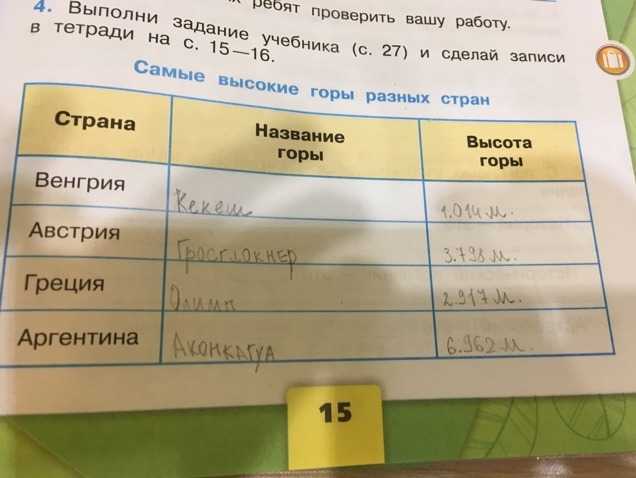 ребят проверить вашу работу.
4. Выполни задание учебника (с. 27) и сделай записи
в тетради на с. 15—16.
Самые высокие горы разных стран
Страна Название горы Высота горы
Венгрия Кекеш 1.014 м.
Австрия Гросглокнер 3.798 м.
Греция Олимп 2.917 м.
Аргентина Аконкагуа 6.962 м.
15